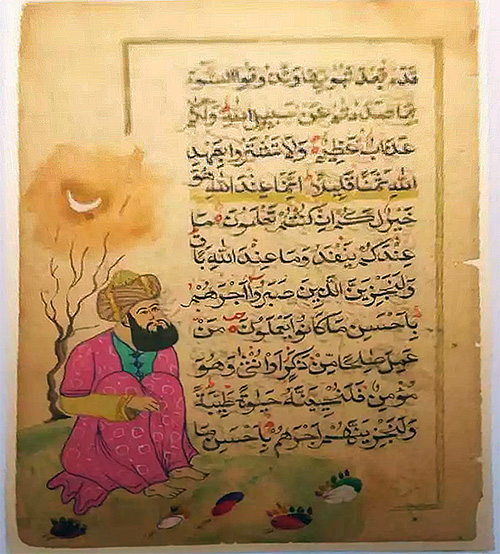 قدم بعد ثبوتها وتذوقوا السوء
بما صددتم عن سبيل الله ولكم
عذاب عظيم ولا تشتروا بعهد
الله ثمنا قليلا انما عند الله هو
خير لكم ان كنتم تعلمون ما
عندكم ينفد وما عند الله باق
ولنجزين الذين صبروا اجرهم
باحسن ما كانوا يعملون من
عمل صلحا من ذكر او انثى وهو
مؤمن فلنحيينه حيوة طيبة
ولنجزينهم اجرهم باحسن ما